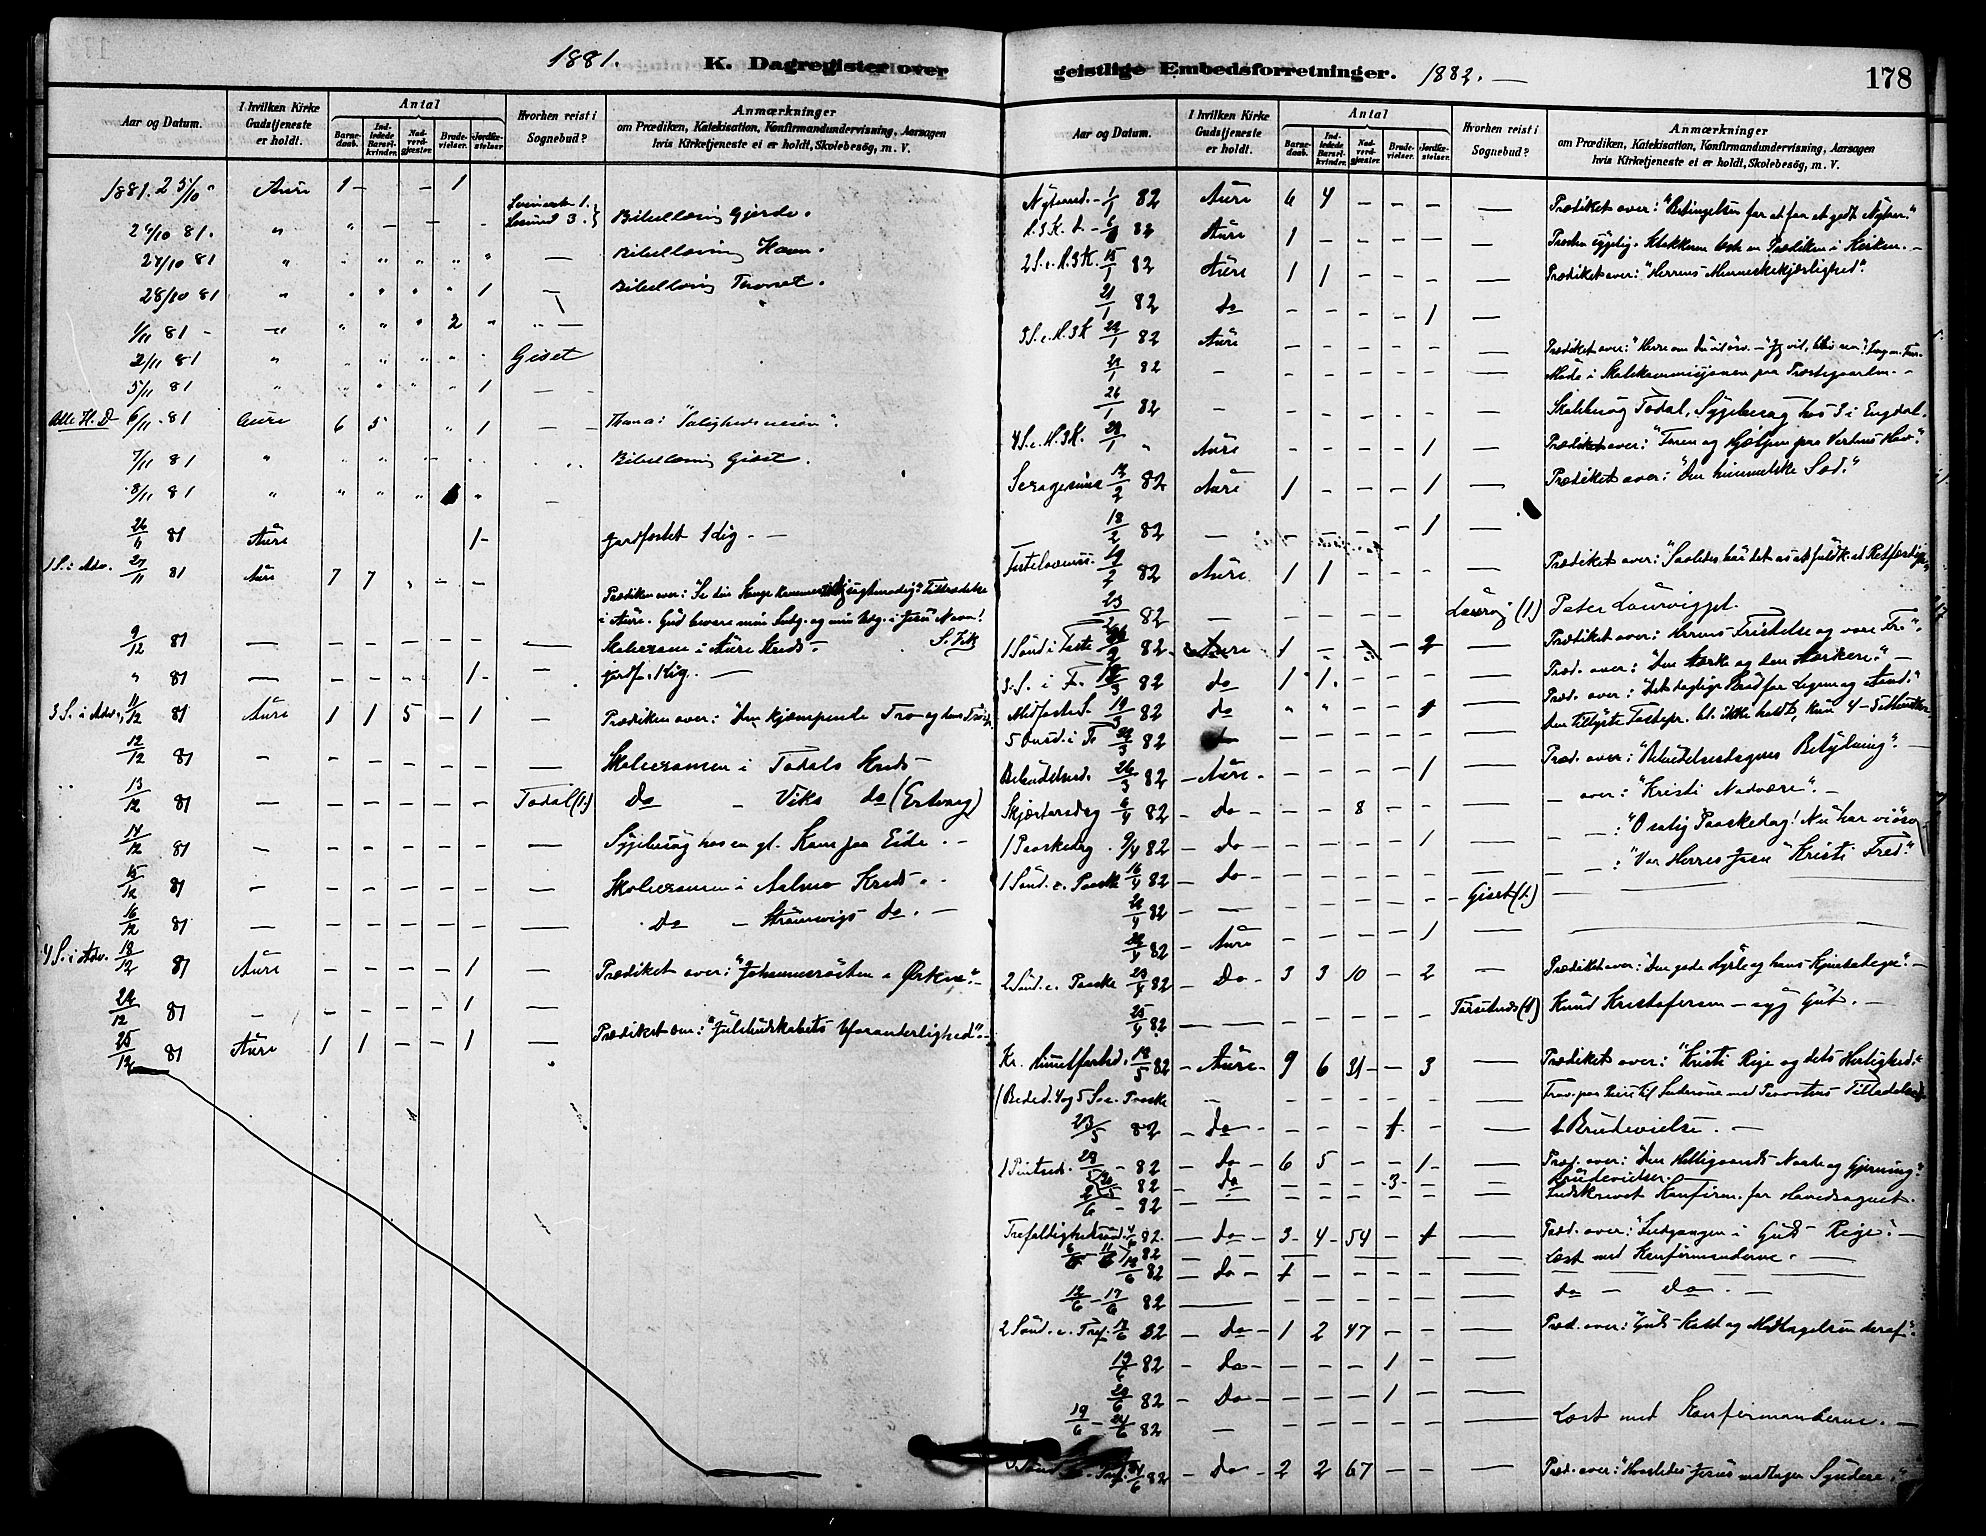 1881. K. Dagregister over geistlige Embedsforretninger. 1882. 178
Aar og Datum.
I hvilken Kirke Gudstjeneste er holdt.
Antal
Barnedaab.
Indledede Barselkvinder.
Nadverdgjæster.
Brudevielser.
Jordfæstelser.
Hvorhen reist i Sognebud?
Anmærkninger
om Prædiken, Katekisation, Konfirmandundervisning, Aarsagen
hvis Kirketjeneste ei er holdt, Skolebesøg, m. V.
1881. 25/10 Aure 1 - - 1
24/10 81. " Losund 3. Bibellæsning Gjerde.
27/10 81 " Bibellæsning Havn.
28/10 81 " 1 - Bibellæsning
1/11 81 - " 2 " -
2/11 81 " Giset
5/11 81 " 1 -
Alle H. D 6/11 - 81 Aure 6 5 " 1 -
7/11 81 " Bibellæsning Giset.
8/11 81 " -
26/11 81 Aure 1 - Jordfæstet 1 Lig. -
1 S. i Adv. 27/11 81 Aure 7 7 - - Prædiken over: "Se din Konge kommer
i Aure. Gud bevare min Indg. og min Udg. i Jesu Navn!
9/12 81 - - - - - - - Skoleexamen i Aure Kreds.
" 81 - - - - - 1 - - jordf. 1 Lig. -
3 S. i Adv. 11/12 81 Aure 1 1 5 - 1 - Prædiken over: "Den kjæmpende Tro og dens
12/12 81 - - - - - - - Skoleexamen i Todals Kreds -
13/12 81 - - - - - - Todal (1.) Do - Viks do (Ertvaag)
14/12 81 - - - - - - - Sygebesøg hos en gl. Kone paa Eide. -
15/12 81 - - - - - - - Skoleexamen i Aalmo Kreds.
16/12 81 - - - - - - - Do - Strømsvigs do. -
4 S. i Adv. 18/12 81 Aure - - - - 1 - Prædiket over: "Johannesrøsten i Ørken." -
24/12 81 - - - - - 1 -
25/12 81 Aure 1 1 - - 1 - Prædiket over: "Julebudskabets Uforanderlighed". -
Aar og Datum.
I hvilken Kirke Gudstjeneste er holdt.
Antal
Barnedaab.
Indledede Barselkvinder.
Nadverdgjæster.
Brudevielser.
Jordfæstelser.
Hvorhen reist i Sognebud?
Anmærkninger
om Prædiken, Katekisation, Konfirmandundervisning, Aarsagen
hvis Kirketjeneste ei er holdt, Skolebesøg, m. V.
Nytaarsd. - 1/1 82 Aure 6 4 - - - - Prædiket over: "Betingelsen for at faa et godt Nytaar."
H. 3 K. D - 6/1 82 Aure 1 - - - - - Præsten sygelig. Klokkeren læste en Prædiken i Kirken. -
2 S. e. H. 3 K. 15/1 82 Aure 1 1 - - - - Prædiket over: "Herrens Menneskekjærlighed".
21/1 82 do - - - - 1 -
3 S. e. H. 3 K 22/1 82 Aure - - - - - - Prædiket over: "Herre om Du vil
82 - - - - - - - Møde i Skolekommissionen paa Præstegaarden. -
26/1 82 - - - - - - - Skolebesøg Todal, Sygebesøg hos 3 i Engdal.
4 S. e. H. 3 K. 29/1 " Aure - - - - 1 - Prædiket over: "Troen og Hjælpen paa Verdens Hav."
Sexagesima 12/2 82 Aure 1 - - - 1 - Prædiket over: "Den himmelske Sæd."
18/2 82 - - - - - 1 -
Fastelavnss. 19/2 82 Aure 1 1 - - - - Prædiket over: "Saaledes bør det os at fuldk. al Retfærdigh."
23/2 82 - - - - - - (1.) Peter
1 Sønd. i Faste 26/2 82 Aure 1 - - - 2 - Prædiket over: Herrens Fristelse og vore Fr.".
3. S. i F. 12/3 82 do 1 1. - - - - Præd. over: "Den stærke og den stærkere." -
Midfastes. 19/3 82 do " " - - 1 - Præd. over: "Det daglige Brød for Legem og Aand."
5 Onsd. i F 22/3 82 do - - - - - - Den tillyste Fastepr. bl. ikke holdt, kun 4-5 Mennesker
Bebudelsesd. 26/3 82 - Aure - - - - - 1 - Præd. over: "Bebudelsesdagens Betydning". -
Skjærtorsdag 6/4 82 - do - - - 8 - - - - over: "Kristi Nadvere". -
1 Paaskedag. 9/4 82 - do - - - - 1 - - - : "O salig Paaskedag! Nu har vi
1 Sønd. e. Paaske 16/4 82 - do - - - - - - - - : "Vor Herres Jesu Kristi Fred."
82 - - - - - - - - Giset (1.) -
22/4 82 - Aure - - - - 1 -
2 Sønd. e. Paaske 23/4 82 - Do - 3 3 10 - 2 - Prædiket over: "Den gode Hyrde og hans Kjendetegn". -
25/4 82 - - - - - - - (1) Knud Kristofersen - syg Gut. -
Kr. Himmelfartsd. 18/5 82 - Aure - 9 6 31 - - 3 - Prædiket over: "Kristi Rige og dets Herlighed."
(Beded. 4 og 5 S. e. Paaske - - - - - - - Frav. paa Reise til Inderøen med Provstens Tilladelse.)
23/5 82 - do - - - - 1 - - 1 Brudevielse. -
1 Pintsed. 28/5 - 82 - do - 6 5 - - 1 - - Præd. over: "Den Helligaands Naade og Gjerning".
82 - do - - - - 3 - - Brudevielser. -
2/6 - 82 - - - - - - - - Indskrevet Konfirm. for Hovedsognet.
Trefoldighedssønd. 4/6 82. - do - 3 - 4 - 54 - 1 - Præd. over: "Indgangen i Guds Rige". -
6/6 - 11/6 82 - - - - - - - Læst med Konfirmanderne. -
82 - do - 1 - - - - -
12/6 - 17/6 82 - - - - - - do - do. -
2 Sønd. e. Tref. 82 - do - 1 2 47 - - - Præd. over: "Guds Kald og Modtagelsen deraf".
19/6 82 - do - - - - 1 - -
82 - Do - - - - 1 - -
19/6 - 24/6 82 - - - - - - - Læst med Konfirmanderne. -
82 - Do - 2 2 67 - - - Præd. over: "Hvorledes Jesus modtager Syndere."